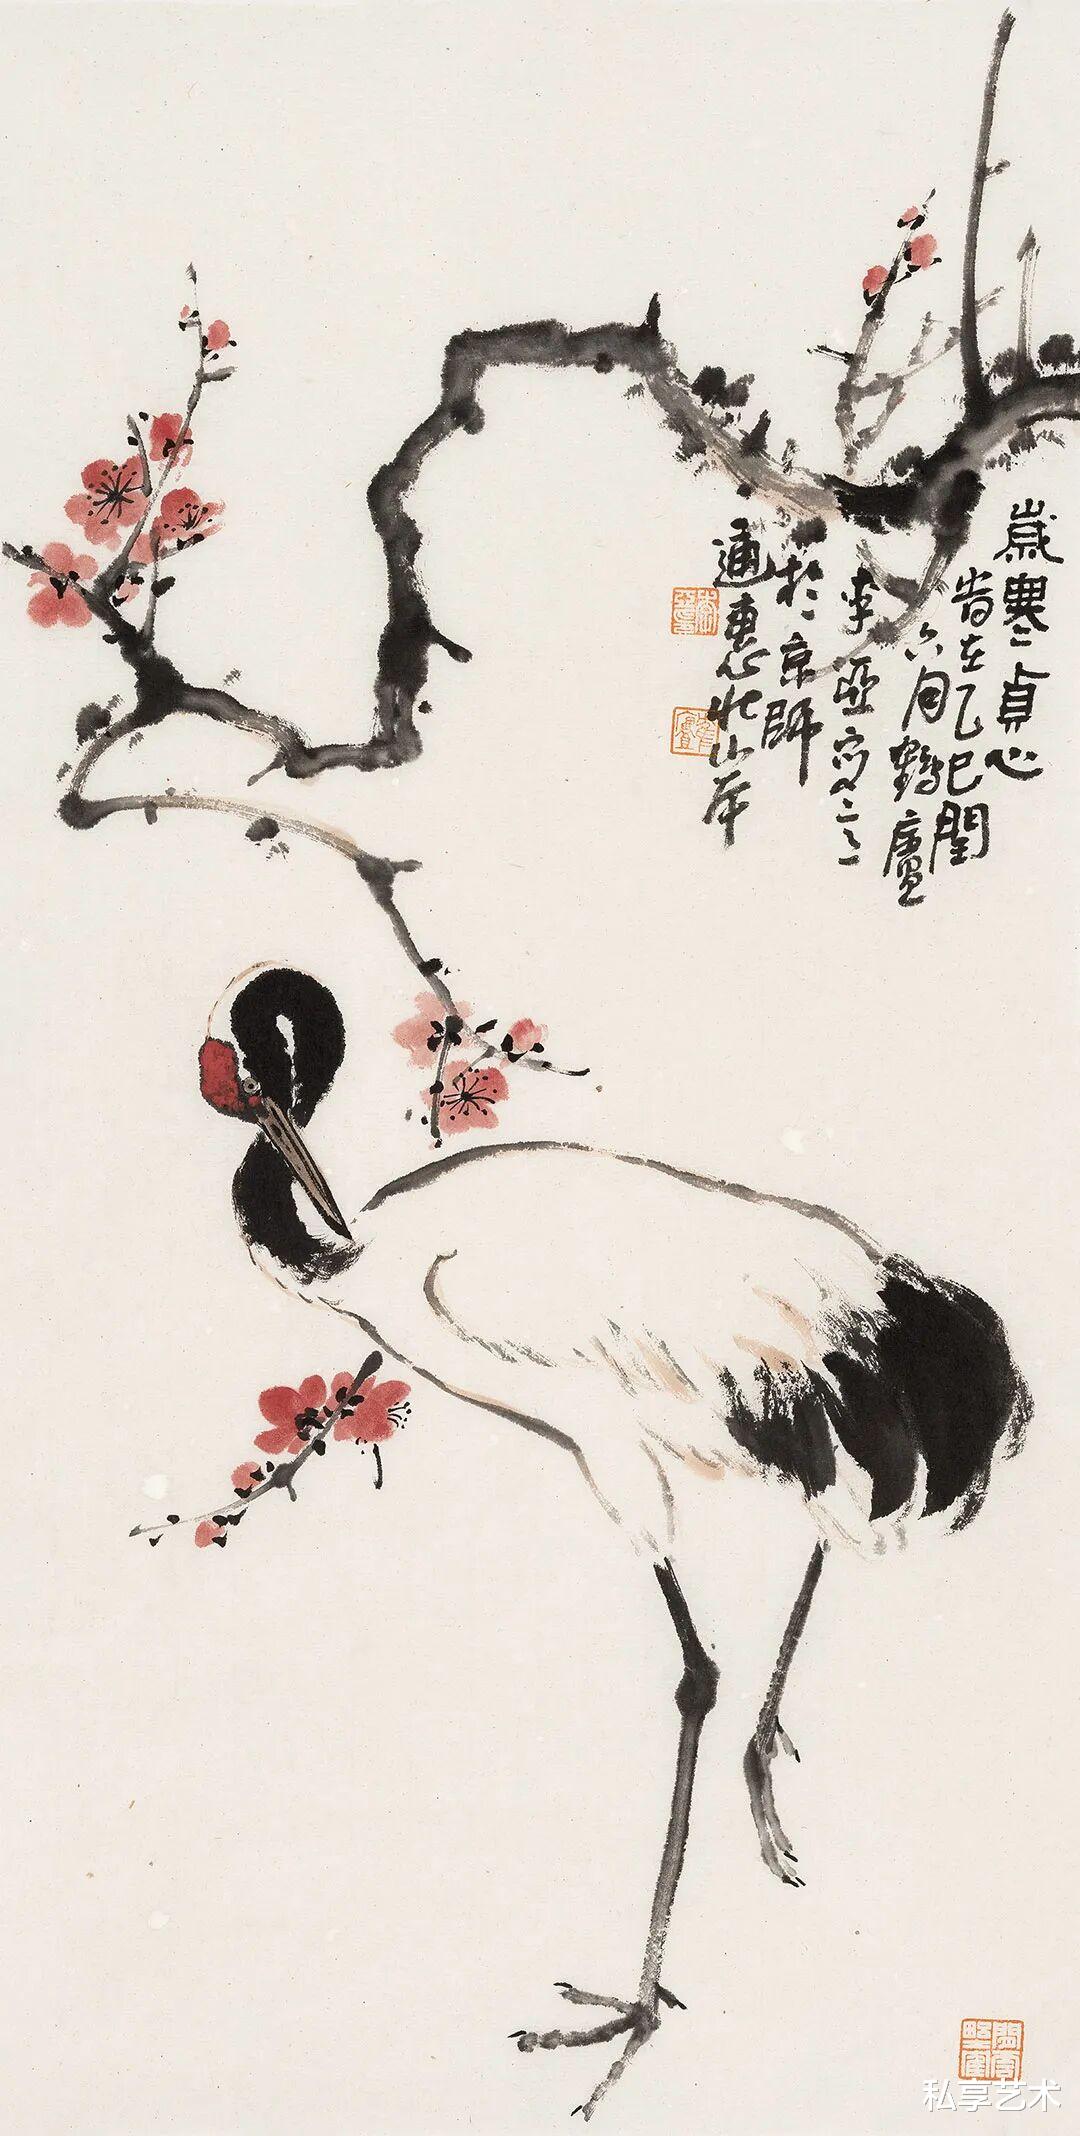 歲寒貞心
旹在乙巳閏
六月鶴廬
李亞寫之
於京師
通惠北岸
私享艺术